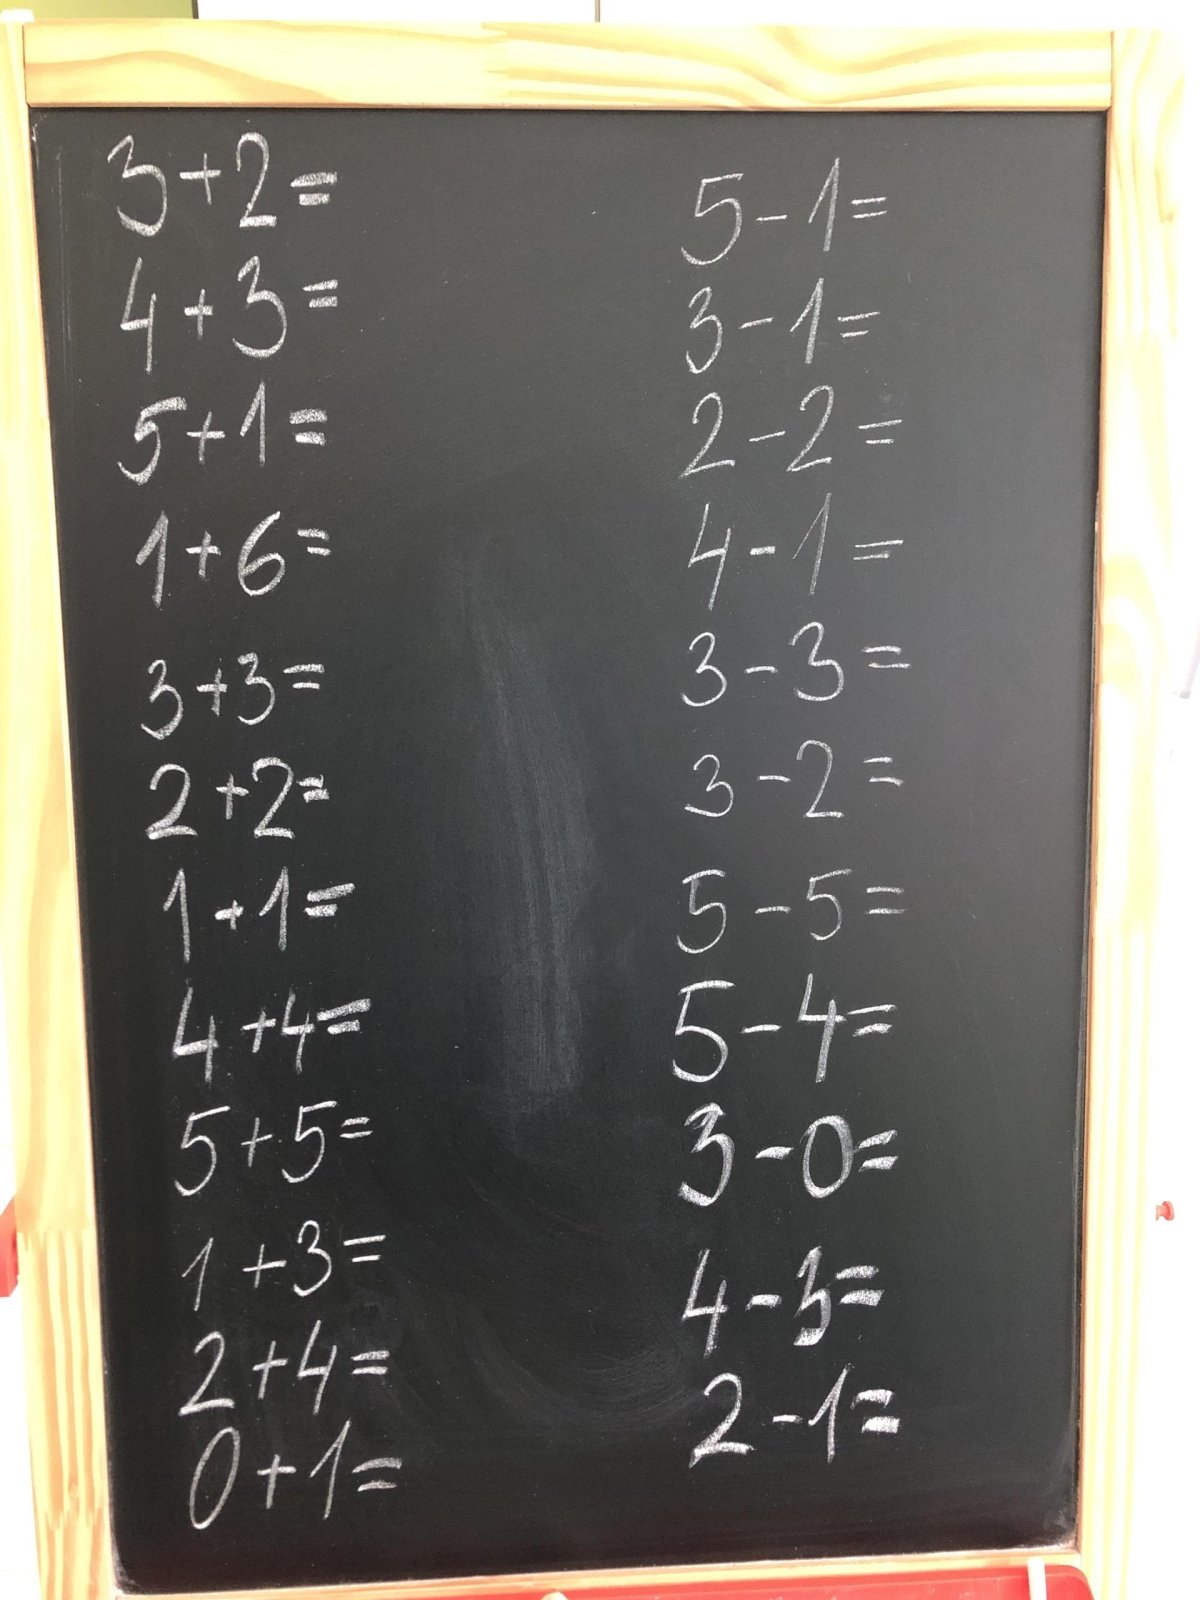 3+2=
4+3=
5+1=
1+6=
3+3=
2+2=
1+1=
4+4=
5+5=
1+3=
2+4=
0+1=
5-1=
3-1=
2-2=
4-1=
3-3=
3-2=
5-5=
5-4=
3-0=
4-3=
2-1=